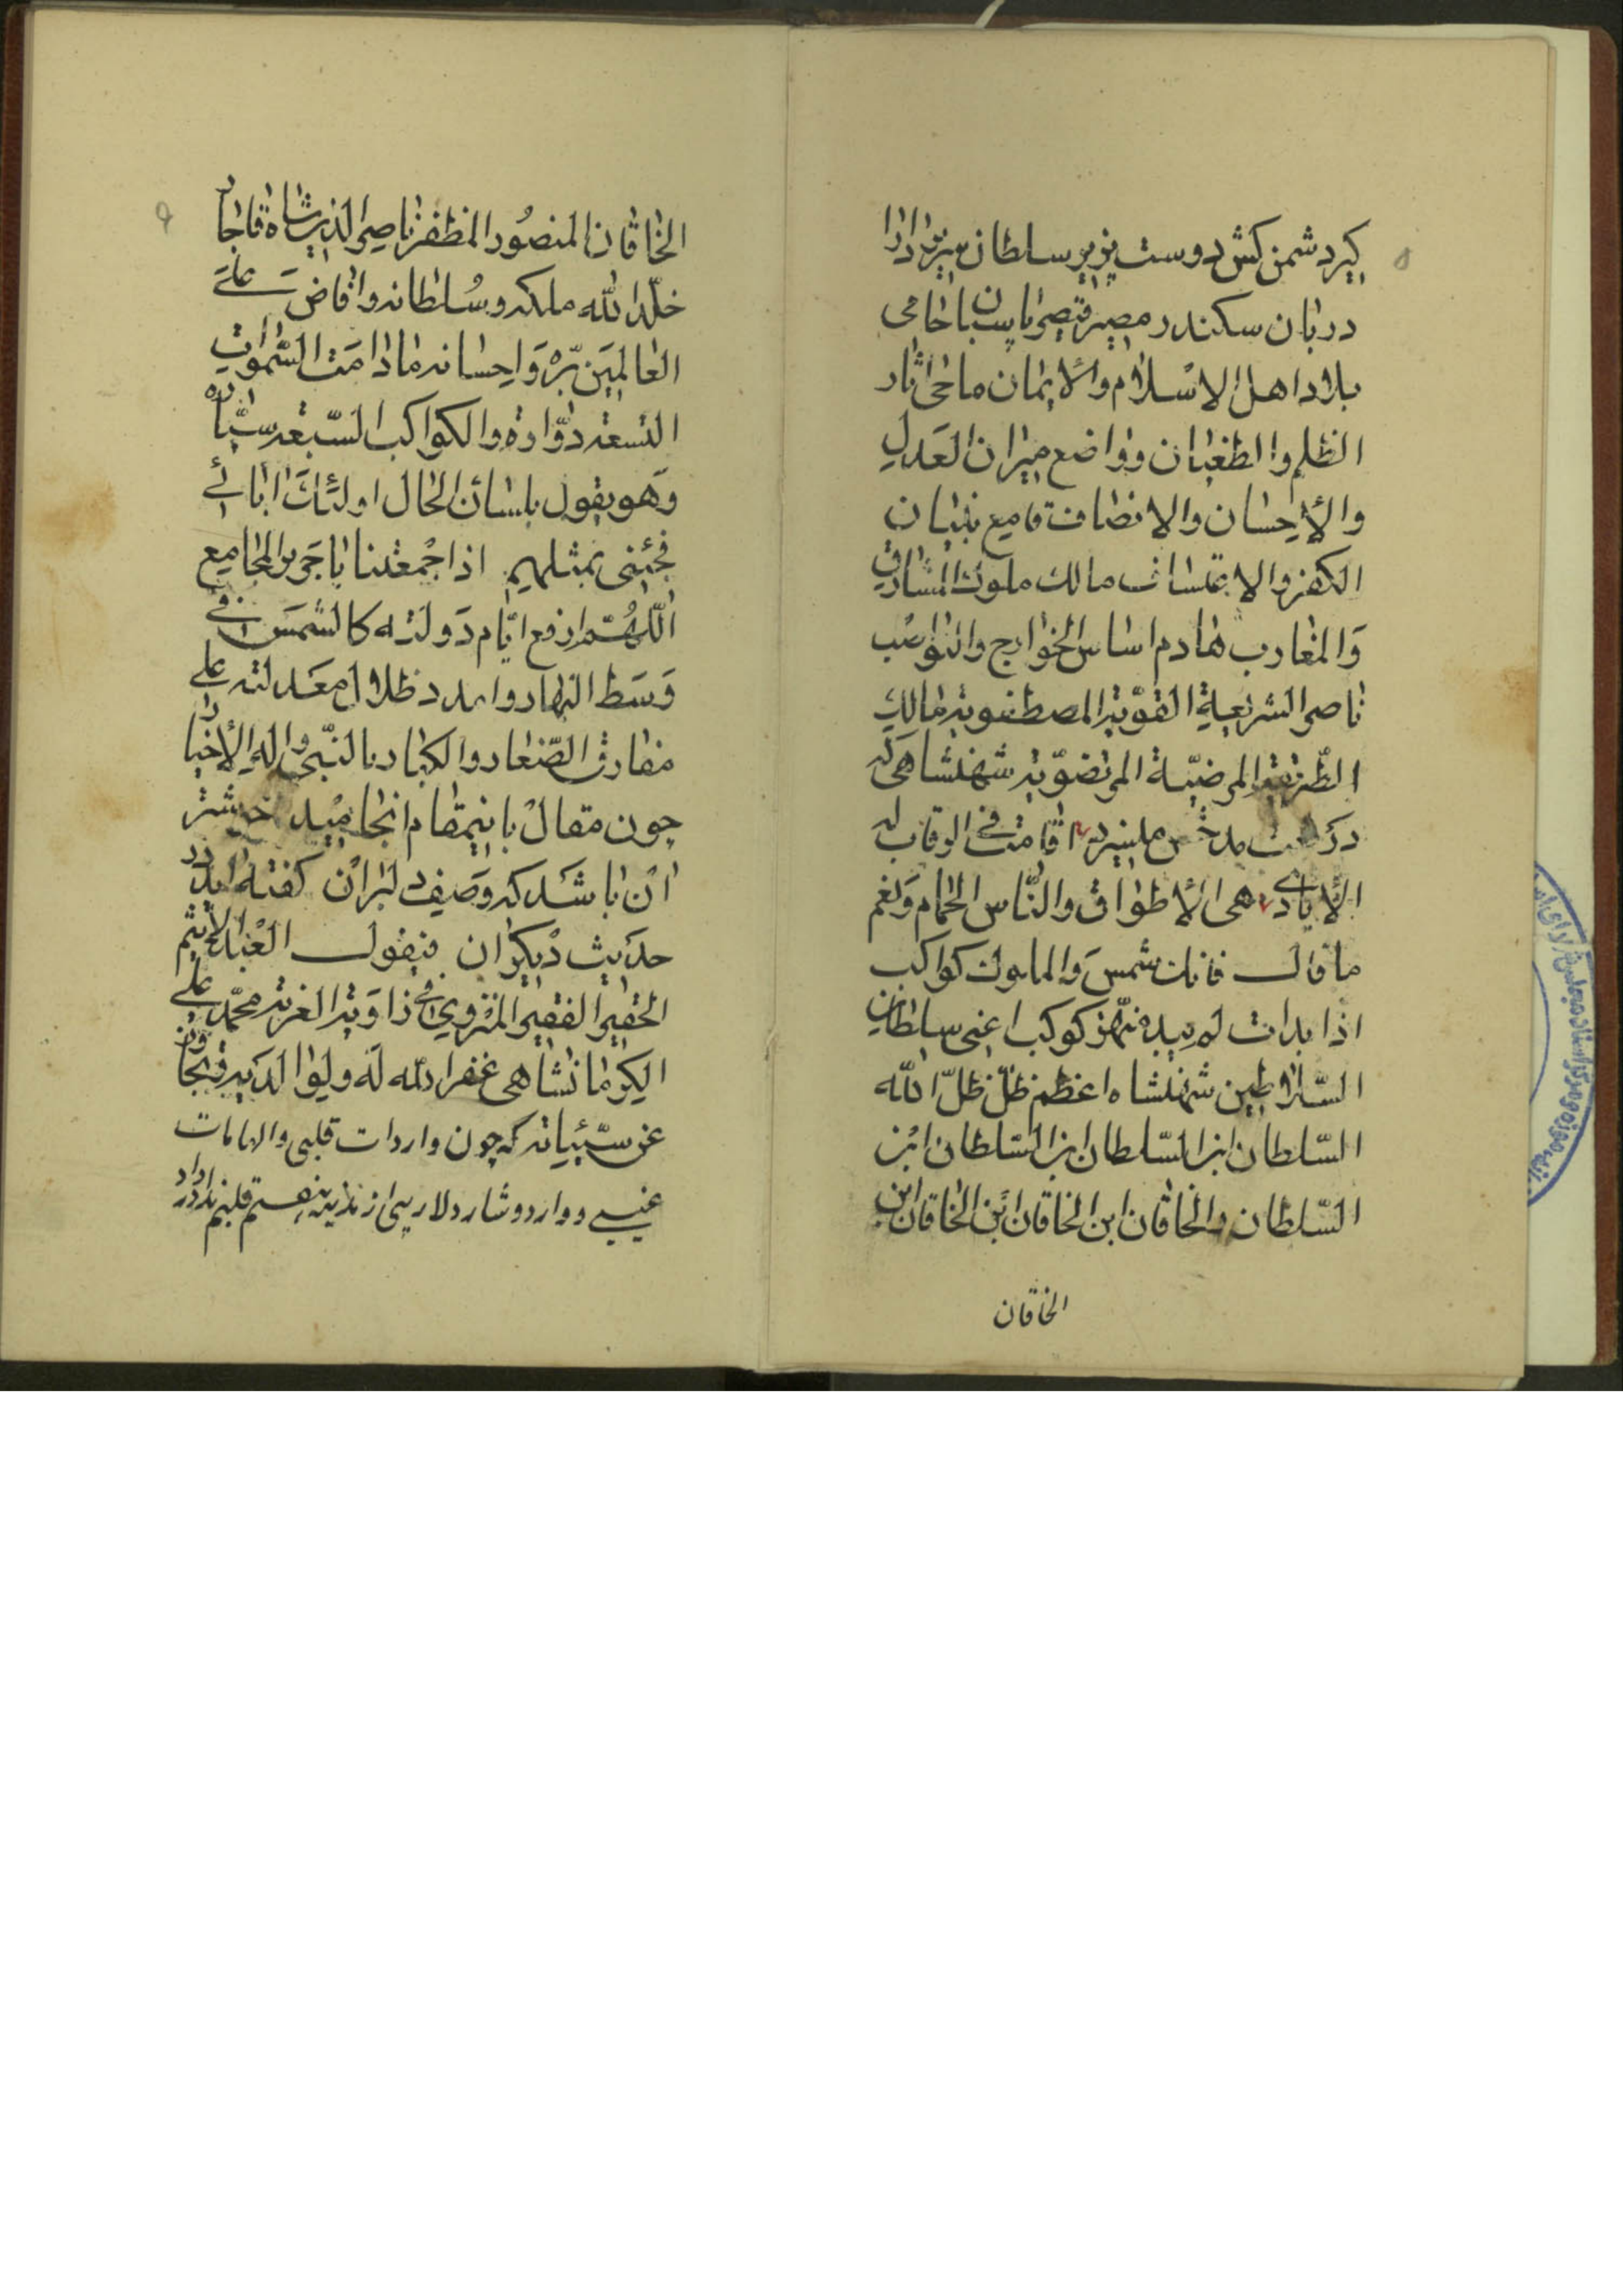 ۵
گیر دشمن کش دوست پزیر سلطان بیزن دارا
دربان سکندر مصیر قیصر پاسبان حامی
بلاد اهل الاسلام والایمان ماحی اثار
الظلم والطغیان وواضع میزان العدل
والاحسان والانصاف قامع بنیان
الکفر والاعتساف مالک ملوک المشارق
والمغارب هادم اساس الخوارج والنواصب
ناصر الشریعة القویة المصطفویة مالک
الطریقة المرضیة المرتضویة شهنشاهی که
در مدحش اقامت فی الرقاب له
الأیادی هی الأطواق والناس الحمام ونعم
ما قال فانک شمس والملوک کواکب
اذا بدات لم یبد منهن کوکب اعنی سلطان
السلاطین شهنشاه اعظم ظل ظل الله
السلطان ابن السلطان ابن السلطان ابن
السلطان والخاقان ابن الخاقان ابن الخاقان ابن
الخاقان
۶
الخاقان المنصور المظفر ناصر الدین شاه قاجار
خلد الله ملکه وسلطانه وافاض علی
العالمین بره واحسانه ما دامت السموات
التسعة دوارة والکواکب السبعة سیارة
وهو یقول بلسان الحال اولئک ابائی
فجئنی بمثلهم اذا جمعتنا یا جریر المجامع
اللهم ارفع ایام دولته کالشمس فی
وسط النهار وامدد ظلال معدلته علی
مفارق الصغار والکبار بالنبی واله الأخیار
چون مقال باینمقام انجامید خوشتر
ان باشد که وصف دلبران گفته اید در
حدیث دیگران فیقول العبد الأثیم
الحقیر الفقیر المنزوی فی زاویة الغربة محمد علی
الکرمانشاهی غفر الله له ولوالدیه وتجاوز
عن سیئیاته که چون واردات قلبی والهامات
غیبی